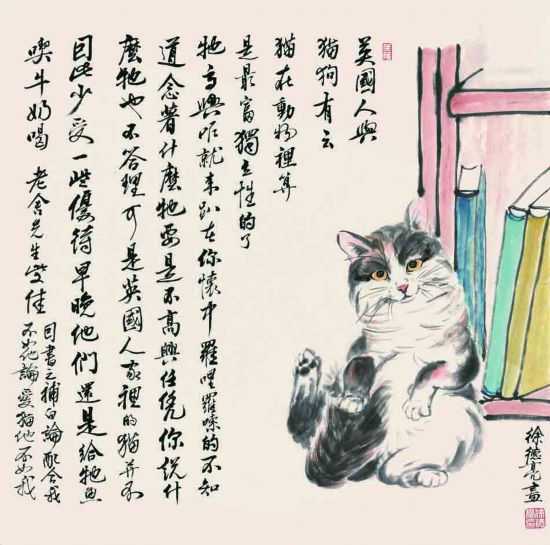 英國人與
猫狗有云
猫在動物裡算
是最富獨立性的了
牠高興咋就来趴在你懷中羅哩羅嗦的不知
道念著什麼牠要是不高興任凭你說什
麼牠也不答理可是英國人家裡的猫并不
因此少受一些優待早晚他們還是給牠魚
喫牛奶喝 老舍先生佳
因書之補白論我
不如他論愛猫他不如我
徐德亮畫